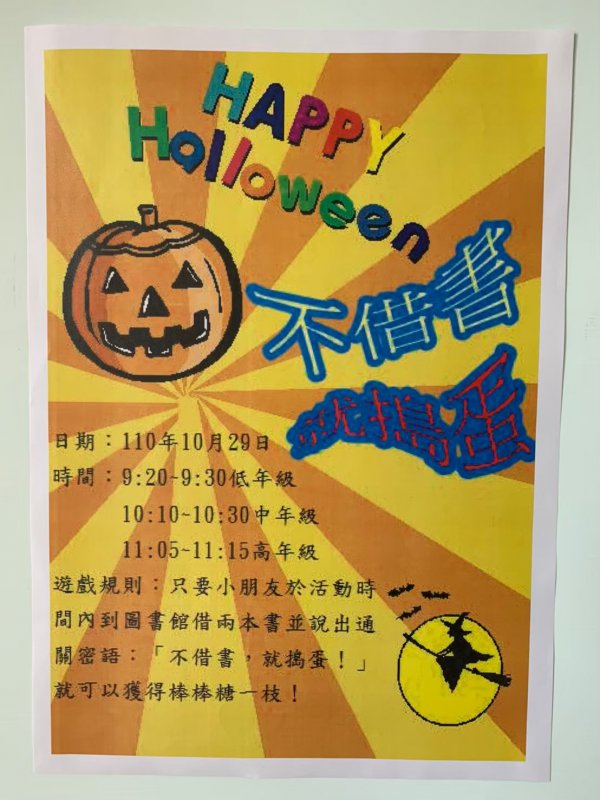 HAPPY
Halloween
不借書
就搗蛋
日期：110年10月29日
時間：9:20~9:30低年級
10:10~10:30中年級
11:05~11:15高年級
遊戲規則：只要小朋友於活動時
間內到圖書館借兩本書並說出通
關密語：「不借書，就搗蛋！」
就可以獲得棒棒糖一枝！